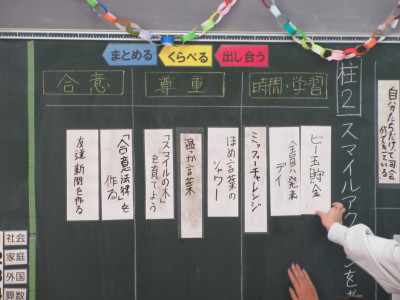 まとめる
くらべる
出し合う
合意
尊重
時間・学習
柱2 スマイルアク
自分たちだけで司会
ができている
ビー玉貯金
全員が発表
デイ
ミッフィーチャレンジ
ほめ言葉の
シャワー
温か言葉
「スマイルの木」
を育てよう
「合意法律」を
作る
友達新聞を作る
社会
家庭
外国
算数